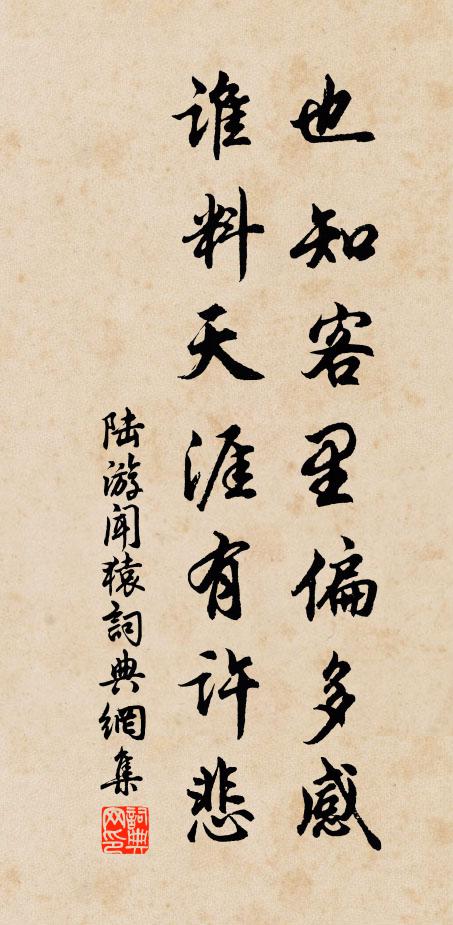 也知客里偏多感
谁料天涯有许悲
陆游闻猿詞典網集
詞典
网印